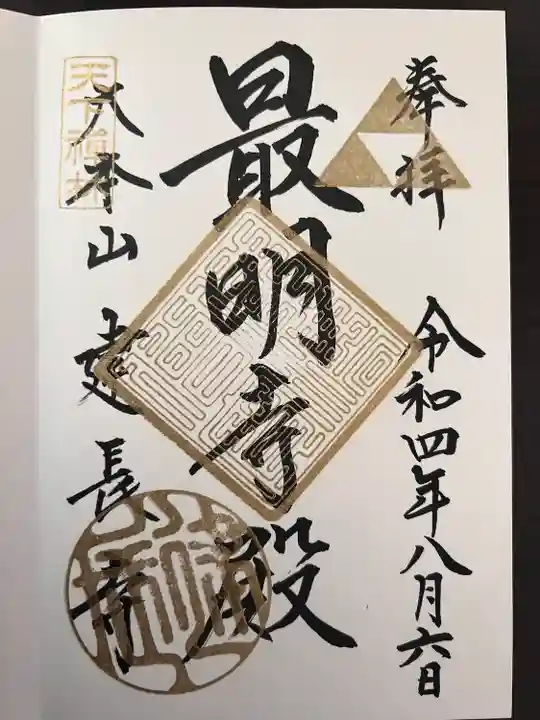 奉拝
令和四年八月六日
最明寺殿
大本山建長寺
天下禅林